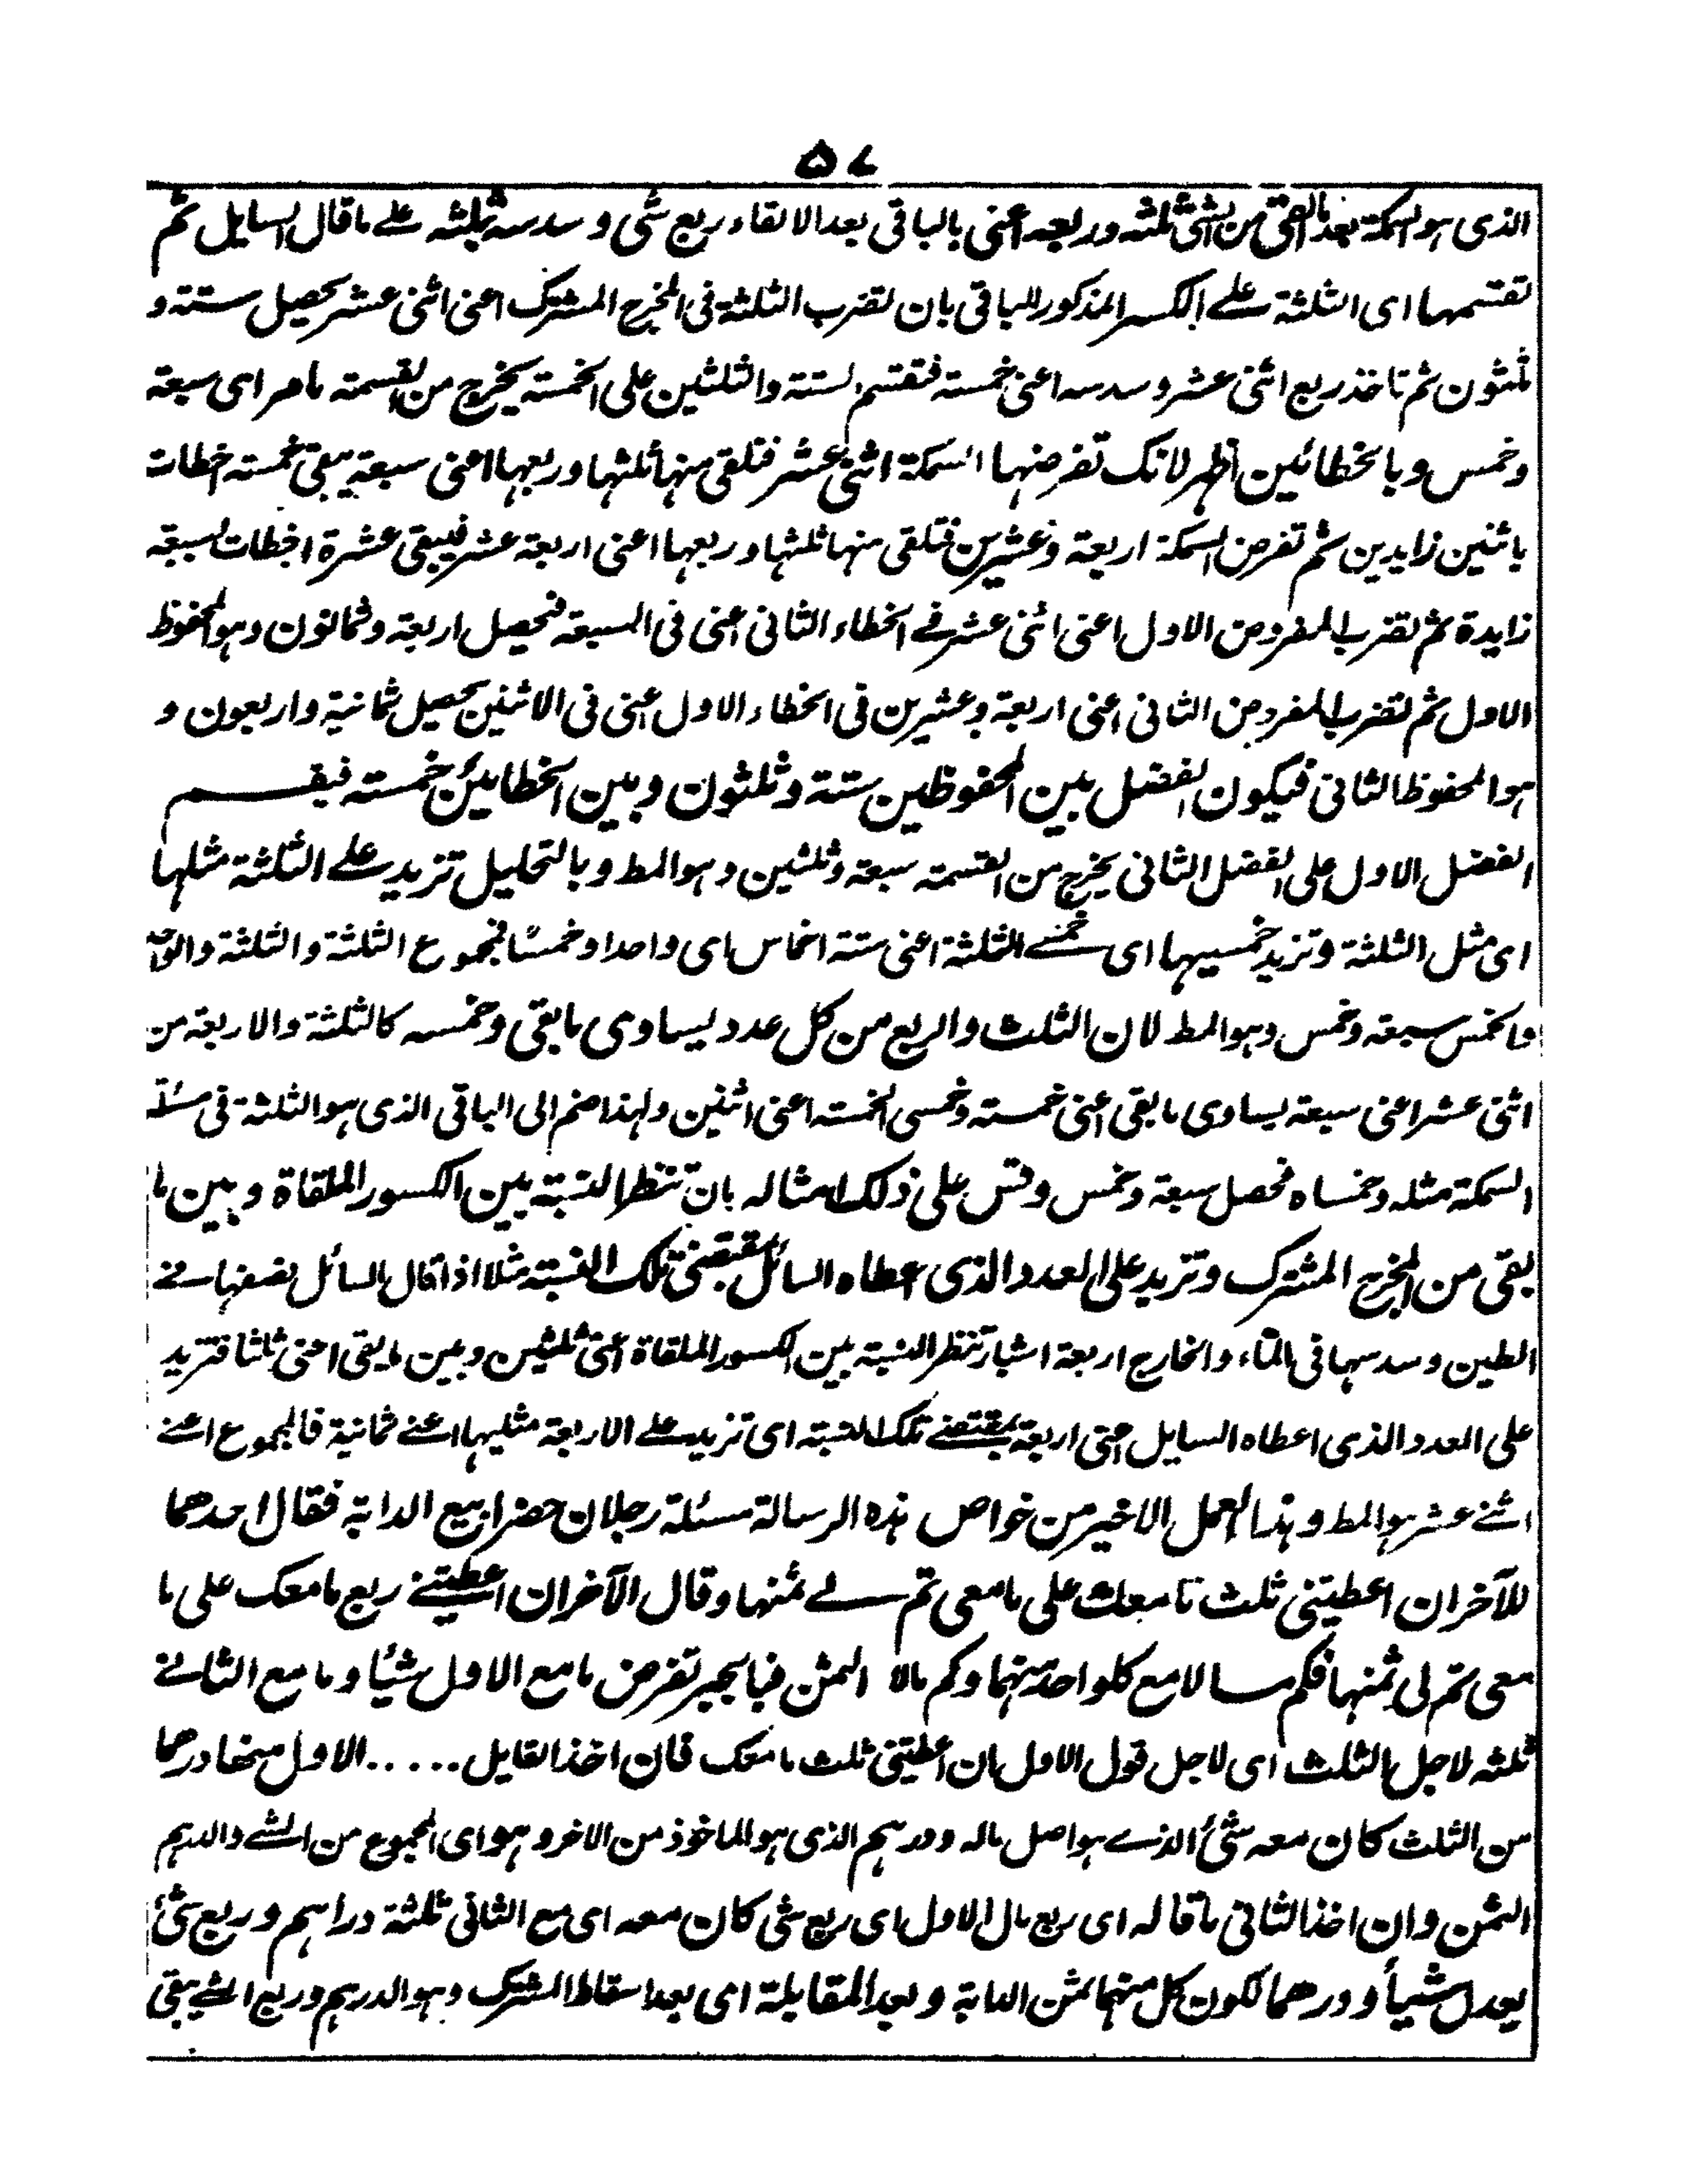 ۵۷
الذی هو السمکة بعد ما القی من الشئ ثلثه وربعه اعنی بالباقی بعد الالقاء ربع شئ و سدسه بثلثه علے ما قال السایل ثم
تقسمها ای الثلثة علے الکسر المذکور للباقی بان تضرب الثلثة فی المخرج المشترک اعنی اثنی عشر یحصل ستة و
ثلثون ثم تاخذ ربع اثنی عشر و سدسه اعنی خمسة فتقسم الستة والثلثین علی الخمسة یخرج من القسمة ما مر ای سبعة
وخمس و بالخطائین اظهر لانک تفرضها السمکة اثنی عشر فتلقی منها ثلثها وربعها اعنی سبعة یبقی خمسة اخطات
باثنین زایدین ثم تفرض السمکة اربعة وعشرین فتلقی منها ثلثها وربعها اعنی اربعة عشر فیبقی عشرة اخطات بسبعة
زایدة ثم تضرب المفروض الاول اعنی اثنی عشر فے الخطاء الثانی اعنی فی السبعة فحصل اربعة وثمانون وهو المحفوظ
الاول ثم تضرب المفروض الثانی اعنی اربعة وعشرین فی الخطاء الاول اعنی فی الاثنین یحصل ثمانیة واربعون و
هو المحفوظ الثانی فیکون الفضل بین المحفوظین ستة وثلثون وبین الخطایین خمسة فیقسم
الفضل الاول علی الفضل الثانی یخرج من القسمة سبعة وثلثین وهو المط وبالتحلیل تزید علے الثلثة مثلها
ای مثل الثلثة وتزید خمسیها ای خمسے الثلثة اعنی ستة اخماس ای واحدا وخمسًا فمجموع الثلثة والثلثة والواحد
والخمس سبعة وخمس وهو المط لان الثلث والربع من کل عدد یساوی ما بقی وخمسه کالثلثة والاربعة من
اثنی عشر اعنی سبعة یساوی ما بقی اعنی خمسة وخمسی الخمسة اعنی اثنین ولهذا ضم الی الباقی الذی هو الثلثة فی مسئلة
السمکة مثله وخمساه فحصل سبعة وخمس وقس علی ذلک امثاله بان تنظر النسبة بین الکسور الملقاة وبین ما
بقی من المخرج المشترک وتزید علی العدد الذی اعطاه السائل بمقتضی تلک النسبة مثلا اذا قال السائل نصفها فے
الطین وسدسها فی المآء والخارج اربعة اشبار تنظر النسبة بین الکسور الملقاة اعنی ثلثین وبین ما یبقی اعنی ثلثا فتزید
علی العدد الذی اعطاه السایل اعنی اربعة بمقتضے تلک النسبة ای تزید علے الاربعة مثلیها اعنے ثمانیة فالمجموع اعنے
اثنے عشر هو المط وهذا العمل الاخیر من خواص هذه الرسالة مسئلة رجلان حضرا بیع الدابة فقال احدهما
للآخر ان اعطیتنی ثلث ما معک علی ما معی تم لے ثمنها وقال الآخر ان اعطیتنے ربع ما معک علی ما
معی تم لی ثمنها فکم مالا مع کل واحد منهما وکم مالا الثمن فبالجبر تفرض ما مع الاول شیًا وما مع الثانے
ثلثه لاجل الثلث ای لاجل قول الاول ان اعطیتنی ثلث ما معک فان اخذ القایل ..... الاول منها درهما
من الثلث کان معه شئ الذے هو اصل ماله ودرهم الذی هو الماخوذ من الاخر وهو ای المجموع من الشے والدرهم
الثمن وان اخذ الثانی ما قاله ای ربع مال الاول ای ربع شئ کان معه ای مع الثانی ثلثة دراهم وربع شئ
یعدل شیأ ودرهما لکون کل منهما ثمن الدابة وبعد المقابلة ای بعد اسقاط المشترک وهو الدرهم وربع الشے یبقی